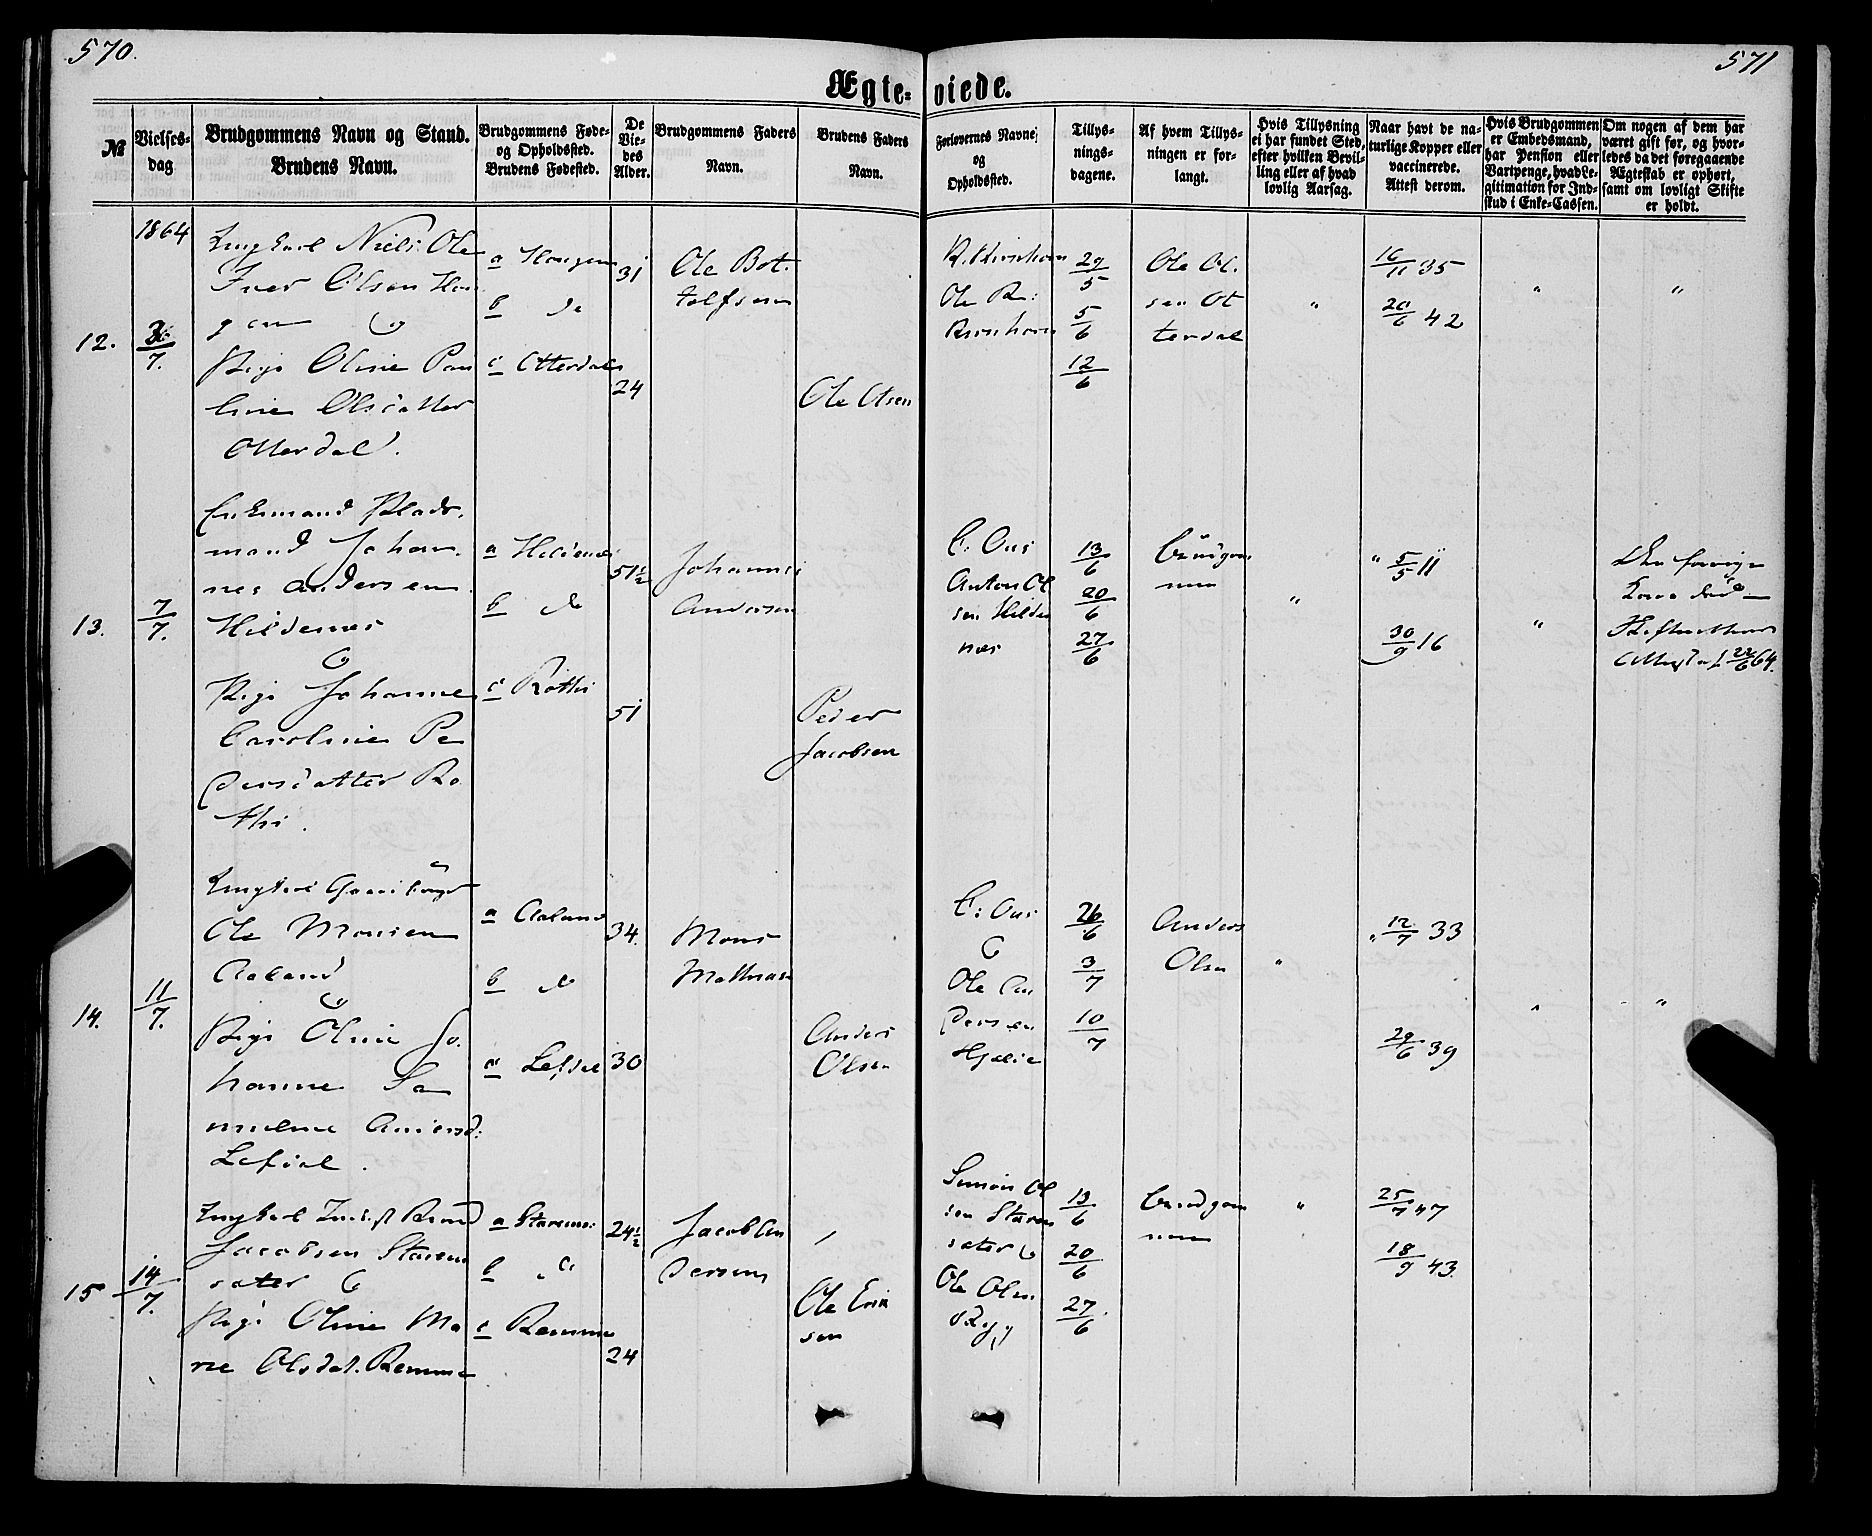 570.
571
Ægte-viede.
№
Vielses-
dag
Brudgommens Navn og Stand.
Brudens Navn.
Brudgommens Føde-
og Opholdssted.
Brudens Fødested.
De
Vie-
des
Alder.
Brudgommens Faders
Navn.
Brudens Faders
Navn.
Forlovernes Navne
og
Opholdssted.
Tillys-
nings-
dagene.
Af hvem Tillys-
ningen er for-
langt.
Hvis Tillysning
ei har fundet Sted,
efter hvilken Bevil-
ling eller af hvad
lovlig Aarsag.
Naar havt de na-
turlige Kopper eller
vaccinerede.
Attest derom.
Hvis Brudgommen
er Embedsmand,
har Pension eller
Vartpenge, hvad Le-
gitimation for Ind-
skud i Enke-Cassen.
Om nogen af dem har
været gift før, og hvor-
ledes da det foregaaende
Ægteskab er ophørt,
samt om lovligt Skifte
er holdt.
1864
12.
7.
Ungkarl Niels Ole
Iver Olsen Hau
gen og
Pige Oline Pau
line Olsdatter
Otterdal.
a Haugen
b do
c Otterdal
31
24
Ole Bot.
tolfsen
Ole Olsen
Ole
29/5
5/6
12/6
Ole Ol.
sen Ot
terdal
"
16/11 35
20/6 42
"
"
13.
7/7.
Enkemand Plads.
mand Johan.
nes Andersen
Hildenes
og
Pige Johanne
Caroline Pe
dersdatter Ro
thi.
a Hildenes
b do
c Rothi
51½
51
Johannes
Andersen
Peder
Jacobsen
Anton Ol
sen Hilde
nes
13/6
20/6
27/6
Brudgom
men
"
" 5/5 11
30/9 16
"
Den forrige
Kone død
22/6 64.
14.
11/7.
Ungkarl
Ole Monsen
Aaland
og
Pige Oline Jo.
hanne Sa
muline Andersd:
Lefdal.
a Aaland
b do
c Lefdal
34.
30
Mons
Mathias
Anders
Olsen
Ole An
dersen
Hjelle
26/6
3/7
10/7
Anders
Olsen
"
" 12/7 33
29/6 39
"
"
15
14/7.
Ungkarl
Jacobsen Staven
sæter &
Pige Oline Ma
rie Olsdat. Remme
a
b do
c Remme
24½
24
Jacob An
dersen
Ole Erik
sen
Simon Ol
sen Staven
sæter &
Ole Olsen
Rygg
13/6
20/6
27/6
Brudgom
men
"
25/7 47
18/9 43.